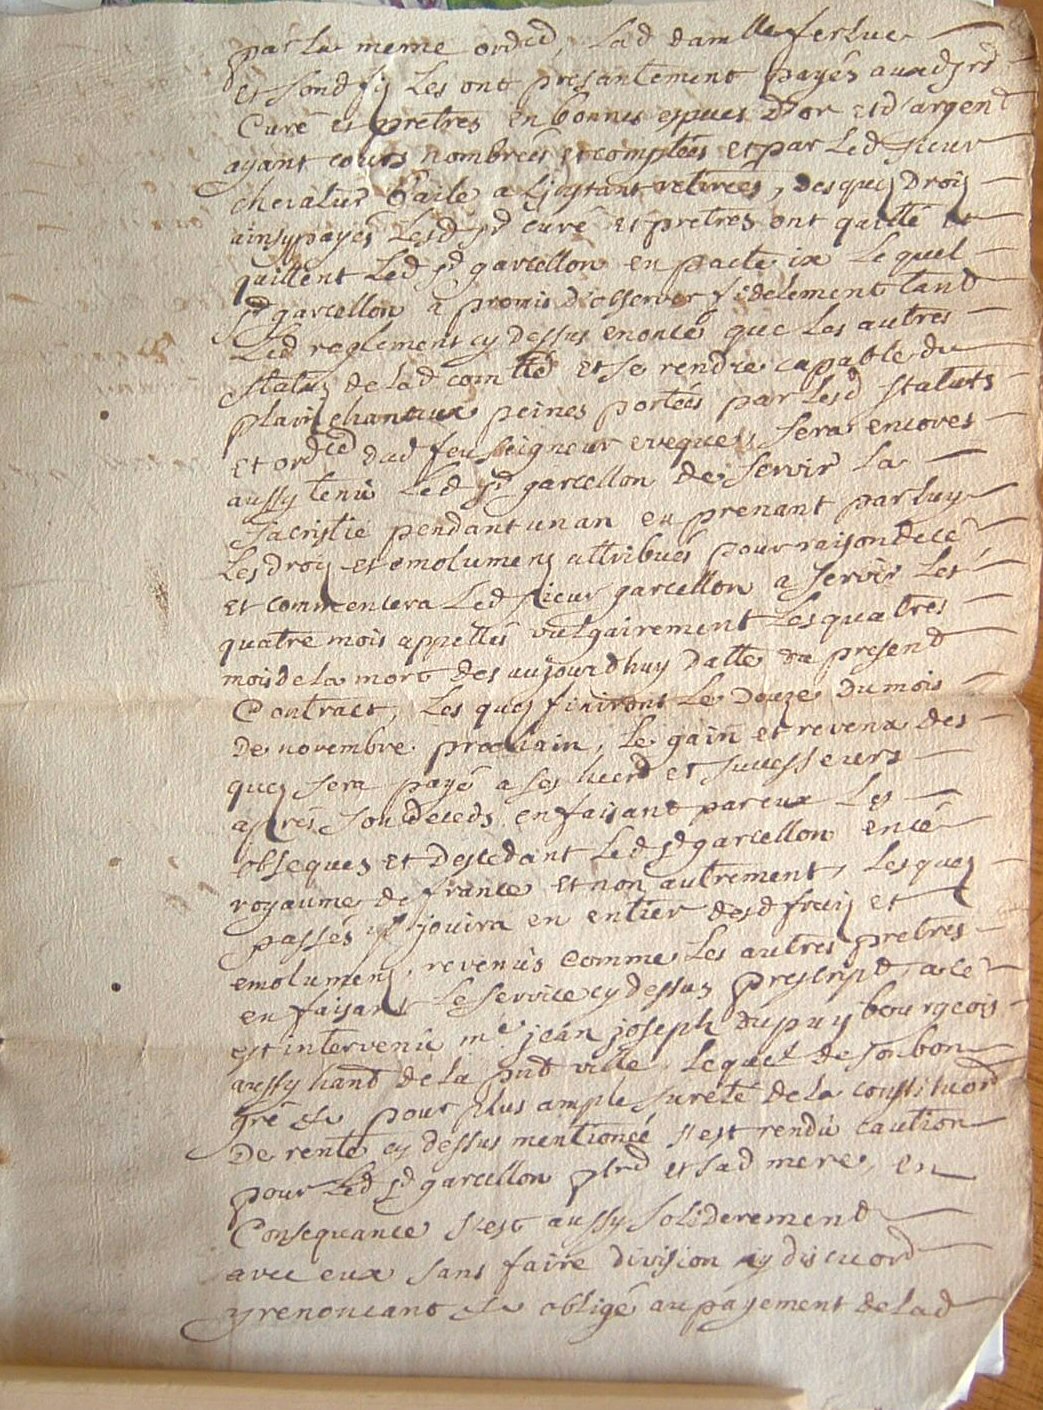 par la meme ordce, Lad damlle ferlue
et sond fi Les ont presantement payés auxd srs
Curé et pretres en bonnes espuces d'or et d'argent
ayant cours nombrées et comptées et par Led sieur
chevalier Baile a L'instant retirées, desquej Droij
ainsy payés Lesd srd curé et pretres ont quitté et
quittent Led sr garcellon en pacte ix Lequel
sr garcellon a promis d'observer fidelement tand
Led reglemens cy dessus enoncé que Les autres
statuj de lad comtté et se rendre capable du
plain chant aux peines portées par Lesd statuts
et ordce dud feu seigneur eveque, sera encores
aussy tenü Led sr garcellon de servir La
sacristie pendant un an en prenant par luy
Les droij et emolumenj attribués pour raison de ce
et commencera Led sieur garcellon a servir Les
quatre mois appellés vulgairement Les quatres
mois de la mort des aujourdhuy datte du present
Contract, Les quej finiront Le Douze du mois
De novembre prochain, Le gain et revenu des
quej sera payé a ses hierd et successeurs
apres son deceds en faisant par eux Les
obseques et Descedant Led sr garcellon en cé
royaume de france et non autrement, Lesquej
passés jl jouira en entier desd fruij et
emolumenj, revenüs comme Les autres pretres
en faisant Le service cy dessus prescript, a ce
est intervenü me jean joseph dupuy bourgeois
aussy hant de la pnt ville Lequel de son bon
gré et pour plus ample sureté de la constituon
De rente cy dessus mentionée s'est rendü caution
pour Led sr garcellon pbrd et sad mere, en
Consequance s'est aussy soliderement
avec eux sans faire division ny discuord
y renoncant et obligé au payement de lad